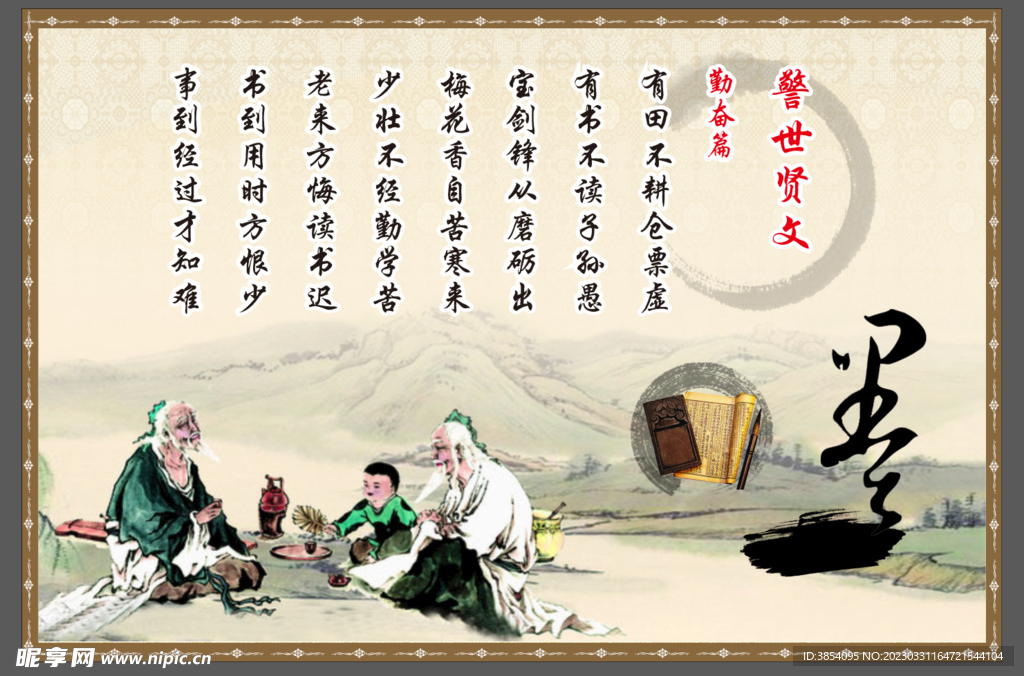 警世贤文
勤奋篇
有田不耕仓票虚
有书不读子孙愚
宝剑锋从磨砺出
梅花香自苦寒来
少壮不经勤学苦
老来方悔读书迟
书到用时方恨少
事到经过才知难
墨
昵享网 www.nipic.cn
ID:3854095 NO:20230331164721544104